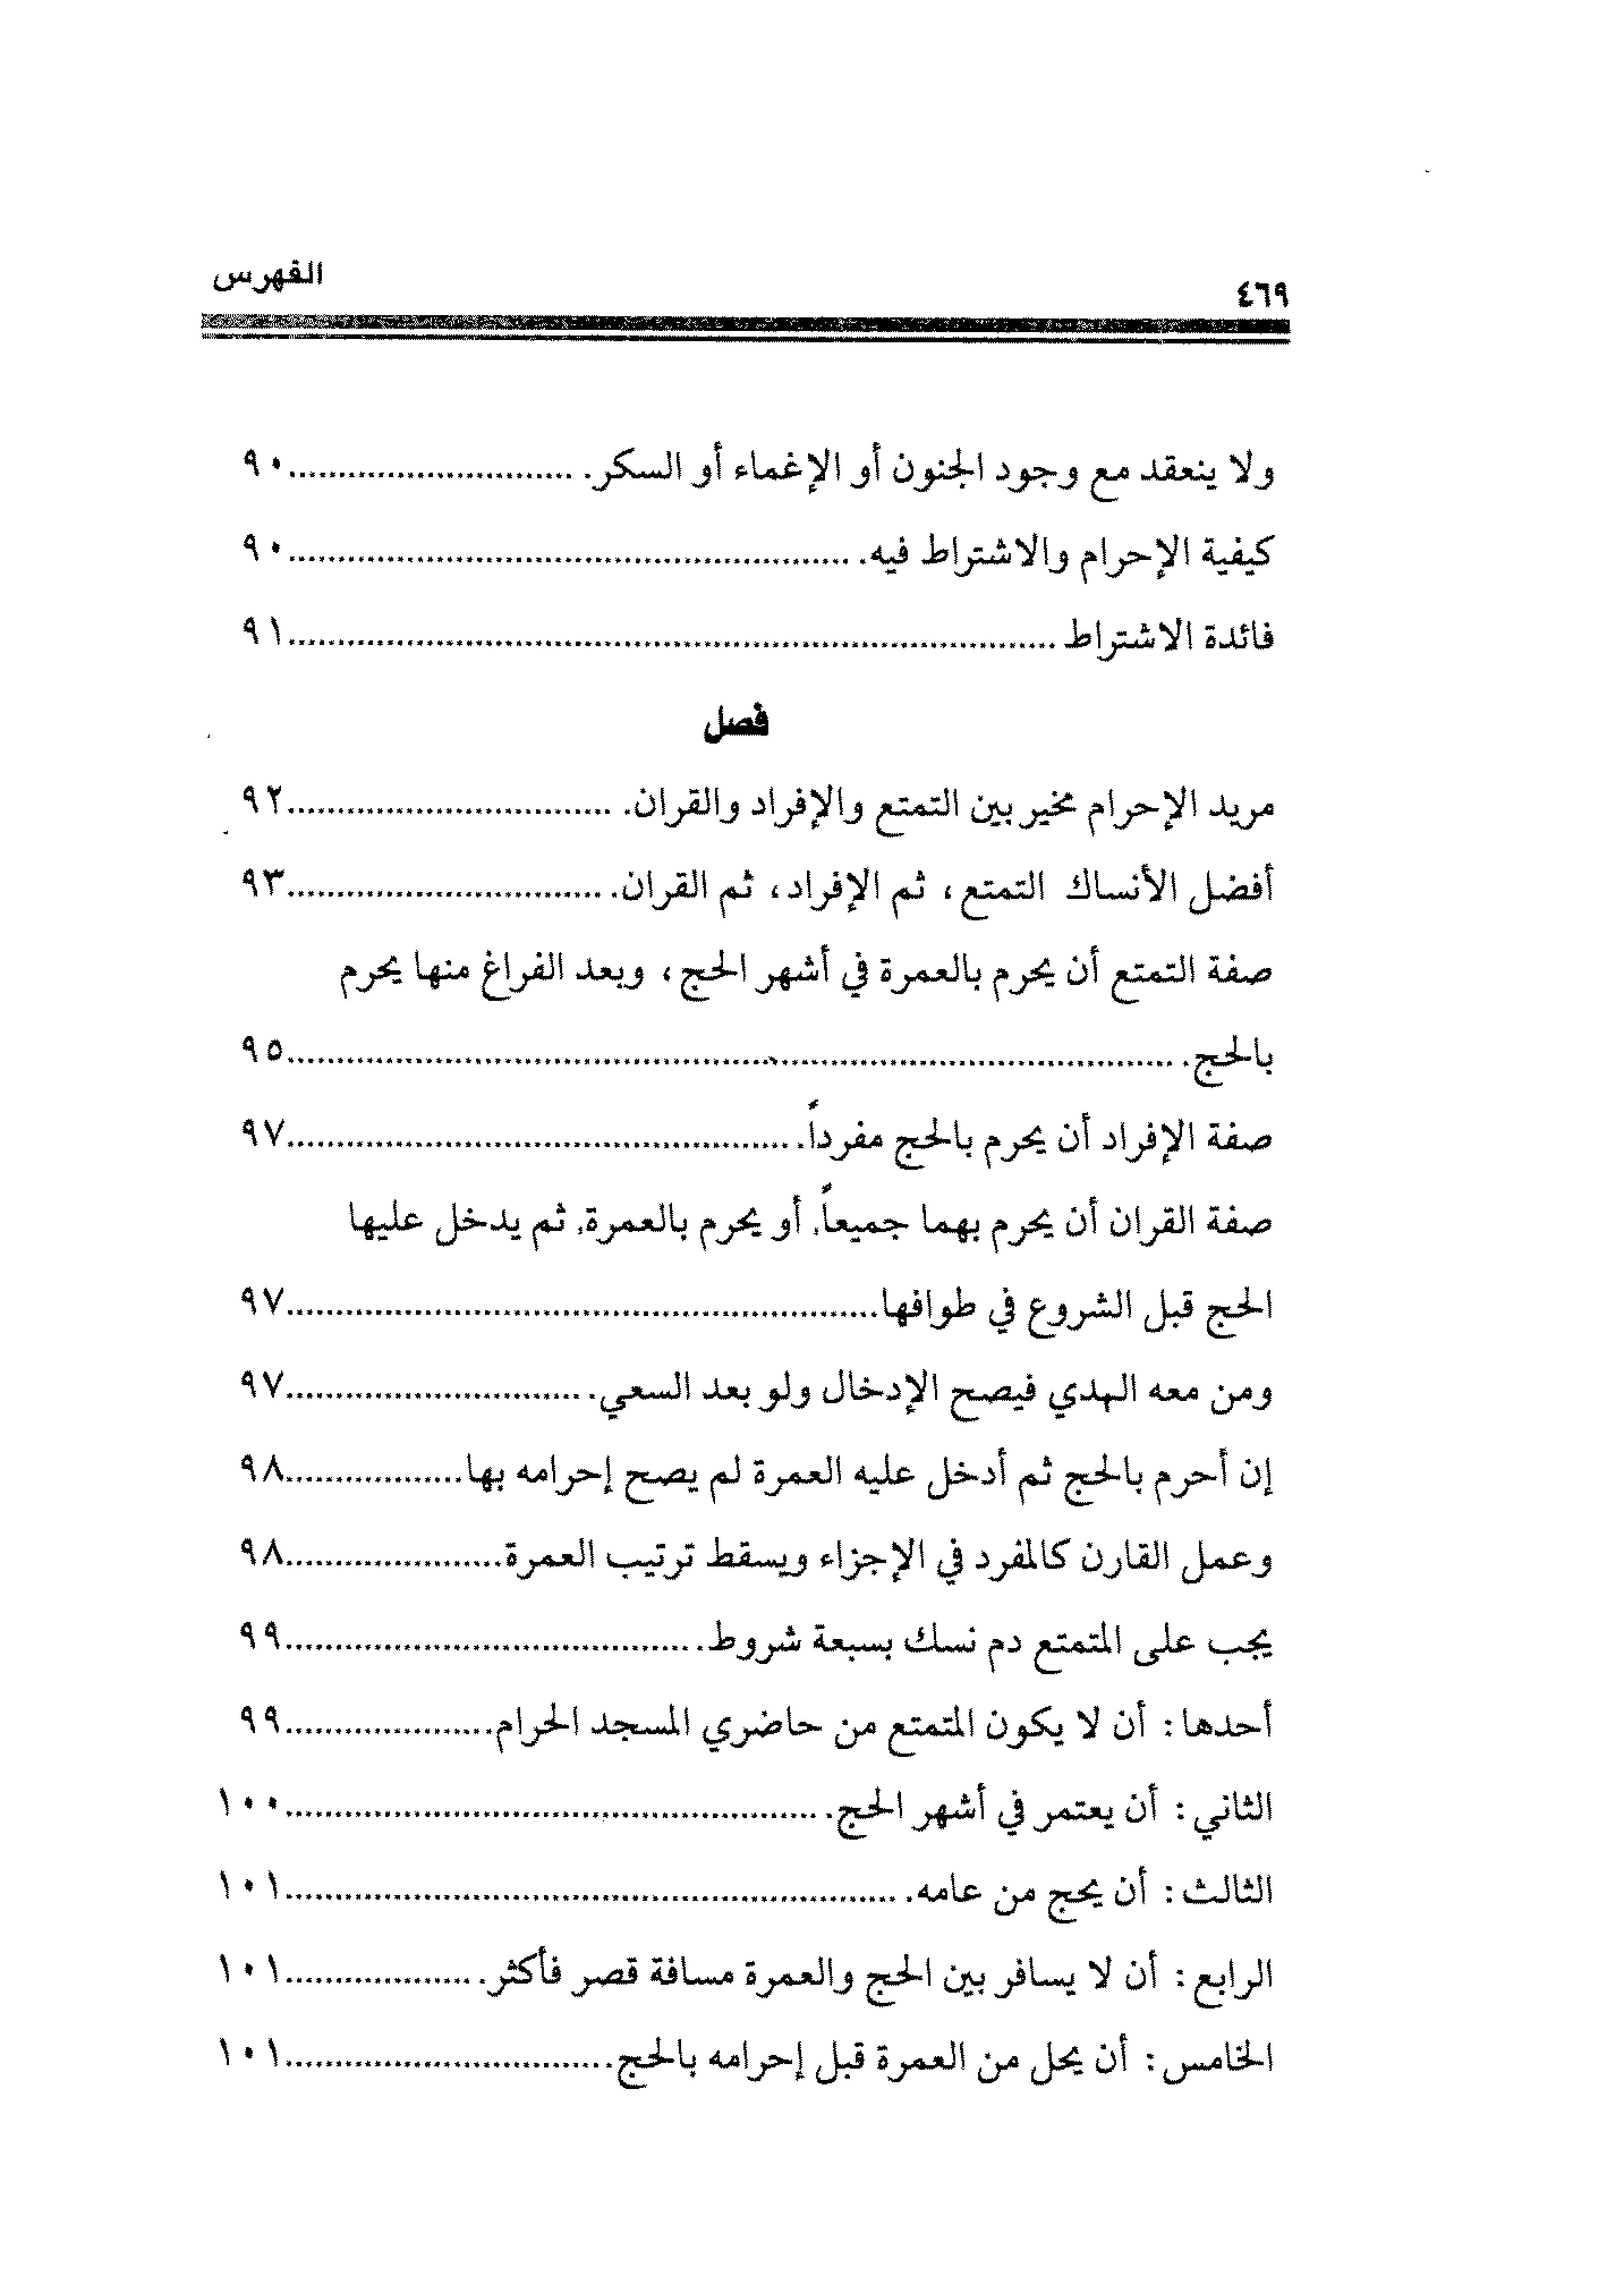 ٤٦٩
الفهرس
ولا ينعقد مع وجود الجنون أو الإغماء أو السكر. ............................٩٠
كيفية الإحرام والاشتراط فيه. ........................................................٩٠
فائدة الاشتراط ............................................................................٩١
فصل
مريد الإحرام مخير بين التمتع والإفراد والقران. ................................٩٢
أفضل الأنساك التمتع، ثم الإفراد، ثم القران. ...............................٩٣
صفة التمتع أن يحرم بالعمرة في أشهر الحج، وبعد الفراغ منها يحرم
بالحج. ........................................................................................٩٥
صفة الإفراد أن يحرم بالحج مفرداً. ..................................................٩٧
صفة القران أن يحرم بهما جميعاً، أو يحرم بالعمرة، ثم يدخل عليها
الحج قبل الشروع في طوافها...........................................................٩٧
ومن معه الهدي فيصح الإدخال ولو بعد السعي. .............................٩٧
إن أحرم بالحج ثم أدخل عليه العمرة لم يصح إحرامه بها..................٩٨
وعمل القارن كالمفرد في الإجزاء ويسقط ترتيب العمرة.....................٩٨
يجب على المتمتع دم نسك بسبعة شروط. ........................................٩٩
أحدها: أن لا يكون المتمتع من حاضري المسجد الحرام....................٩٩
الثاني: أن يعتمر في أشهر الحج. .....................................................١٠٠
الثالث: أن يحج من عامه. .............................................................١٠١
الرابع: أن لا يسافر بين الحج والعمرة مسافة قصر فأكثر. ..................١٠١
الخامس: أن يحل من العمرة قبل إحرامه بالحج................................١٠١